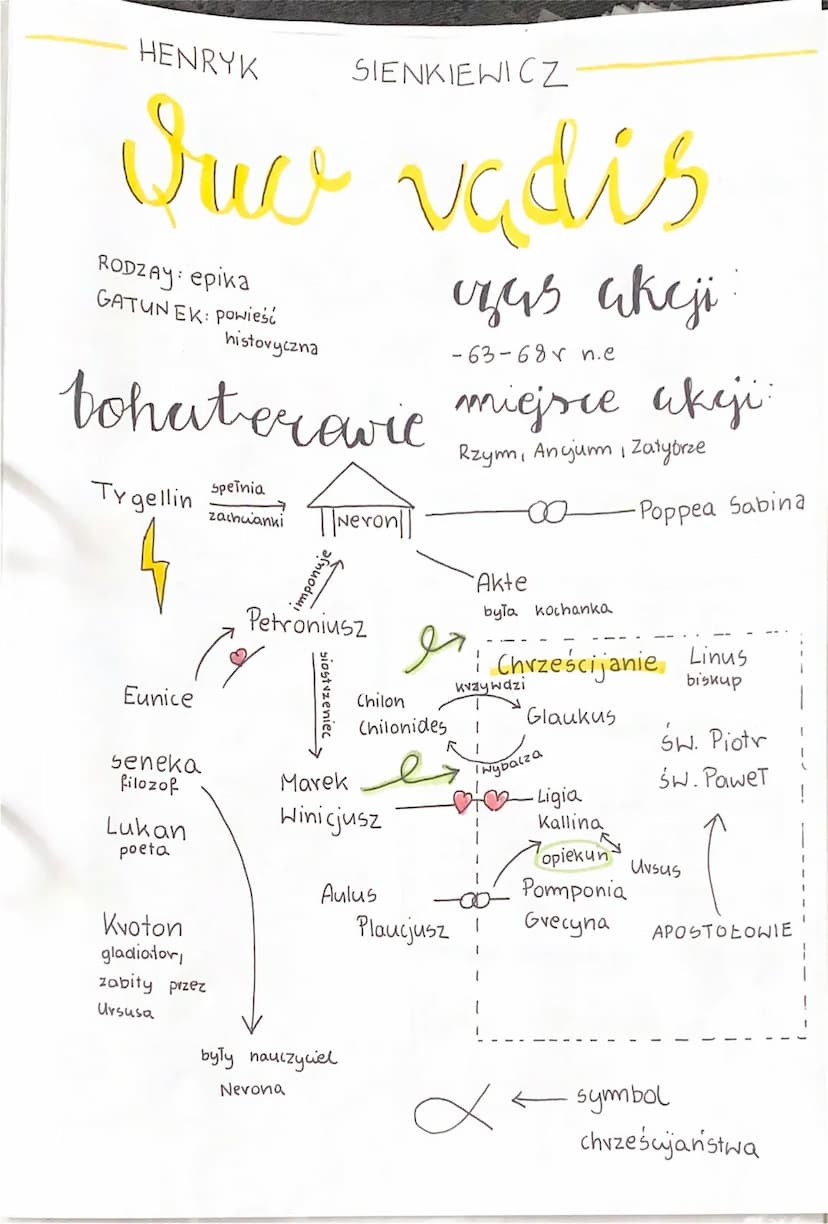 HENRYK SIENKIEWICZ
Quo vadis
RODZAJ: epika
GATUNEK: powieść
historyczna
czas akcji:
-63-68r n.e
bohaterowie
miejsce akcji:
Rzym, Ancjum, Zatybrze
Tygellin
spełnia
zachcianki
Neron
Poppea Sabina
imponuje
Akte
była kochanka
Petroniusz
siostrzeniec
Eunice
Chrześcijanie
Linus
biskup
krzywdzi
Chilon
Chilonides
Glaukus
wybacza
Św. Piotr
Św. Paweł
seneka
filozof
Marek
Winicjusz
Ligia
Kallina
Lukan
poeta
opiekun
Ursus
Aulus
Plaucjusz
Pomponia
Grecyna
APOSTOŁOWIE
Kroton
gladiator,
zabity przez
Ursusa
były nauczyciel
Nerona
symbol
chrześcijaństwa